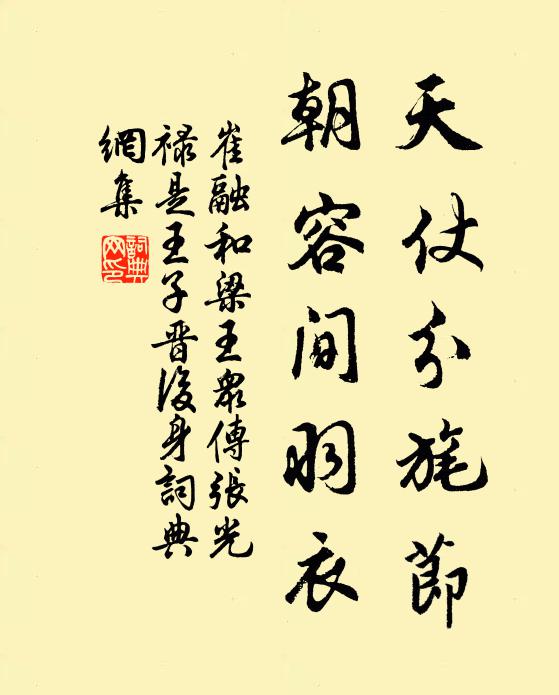 天仗分旄節
朝容間羽衣
崔融和梁王眾傳張光
祿是王子晋後身詞典
網集
詞典網印